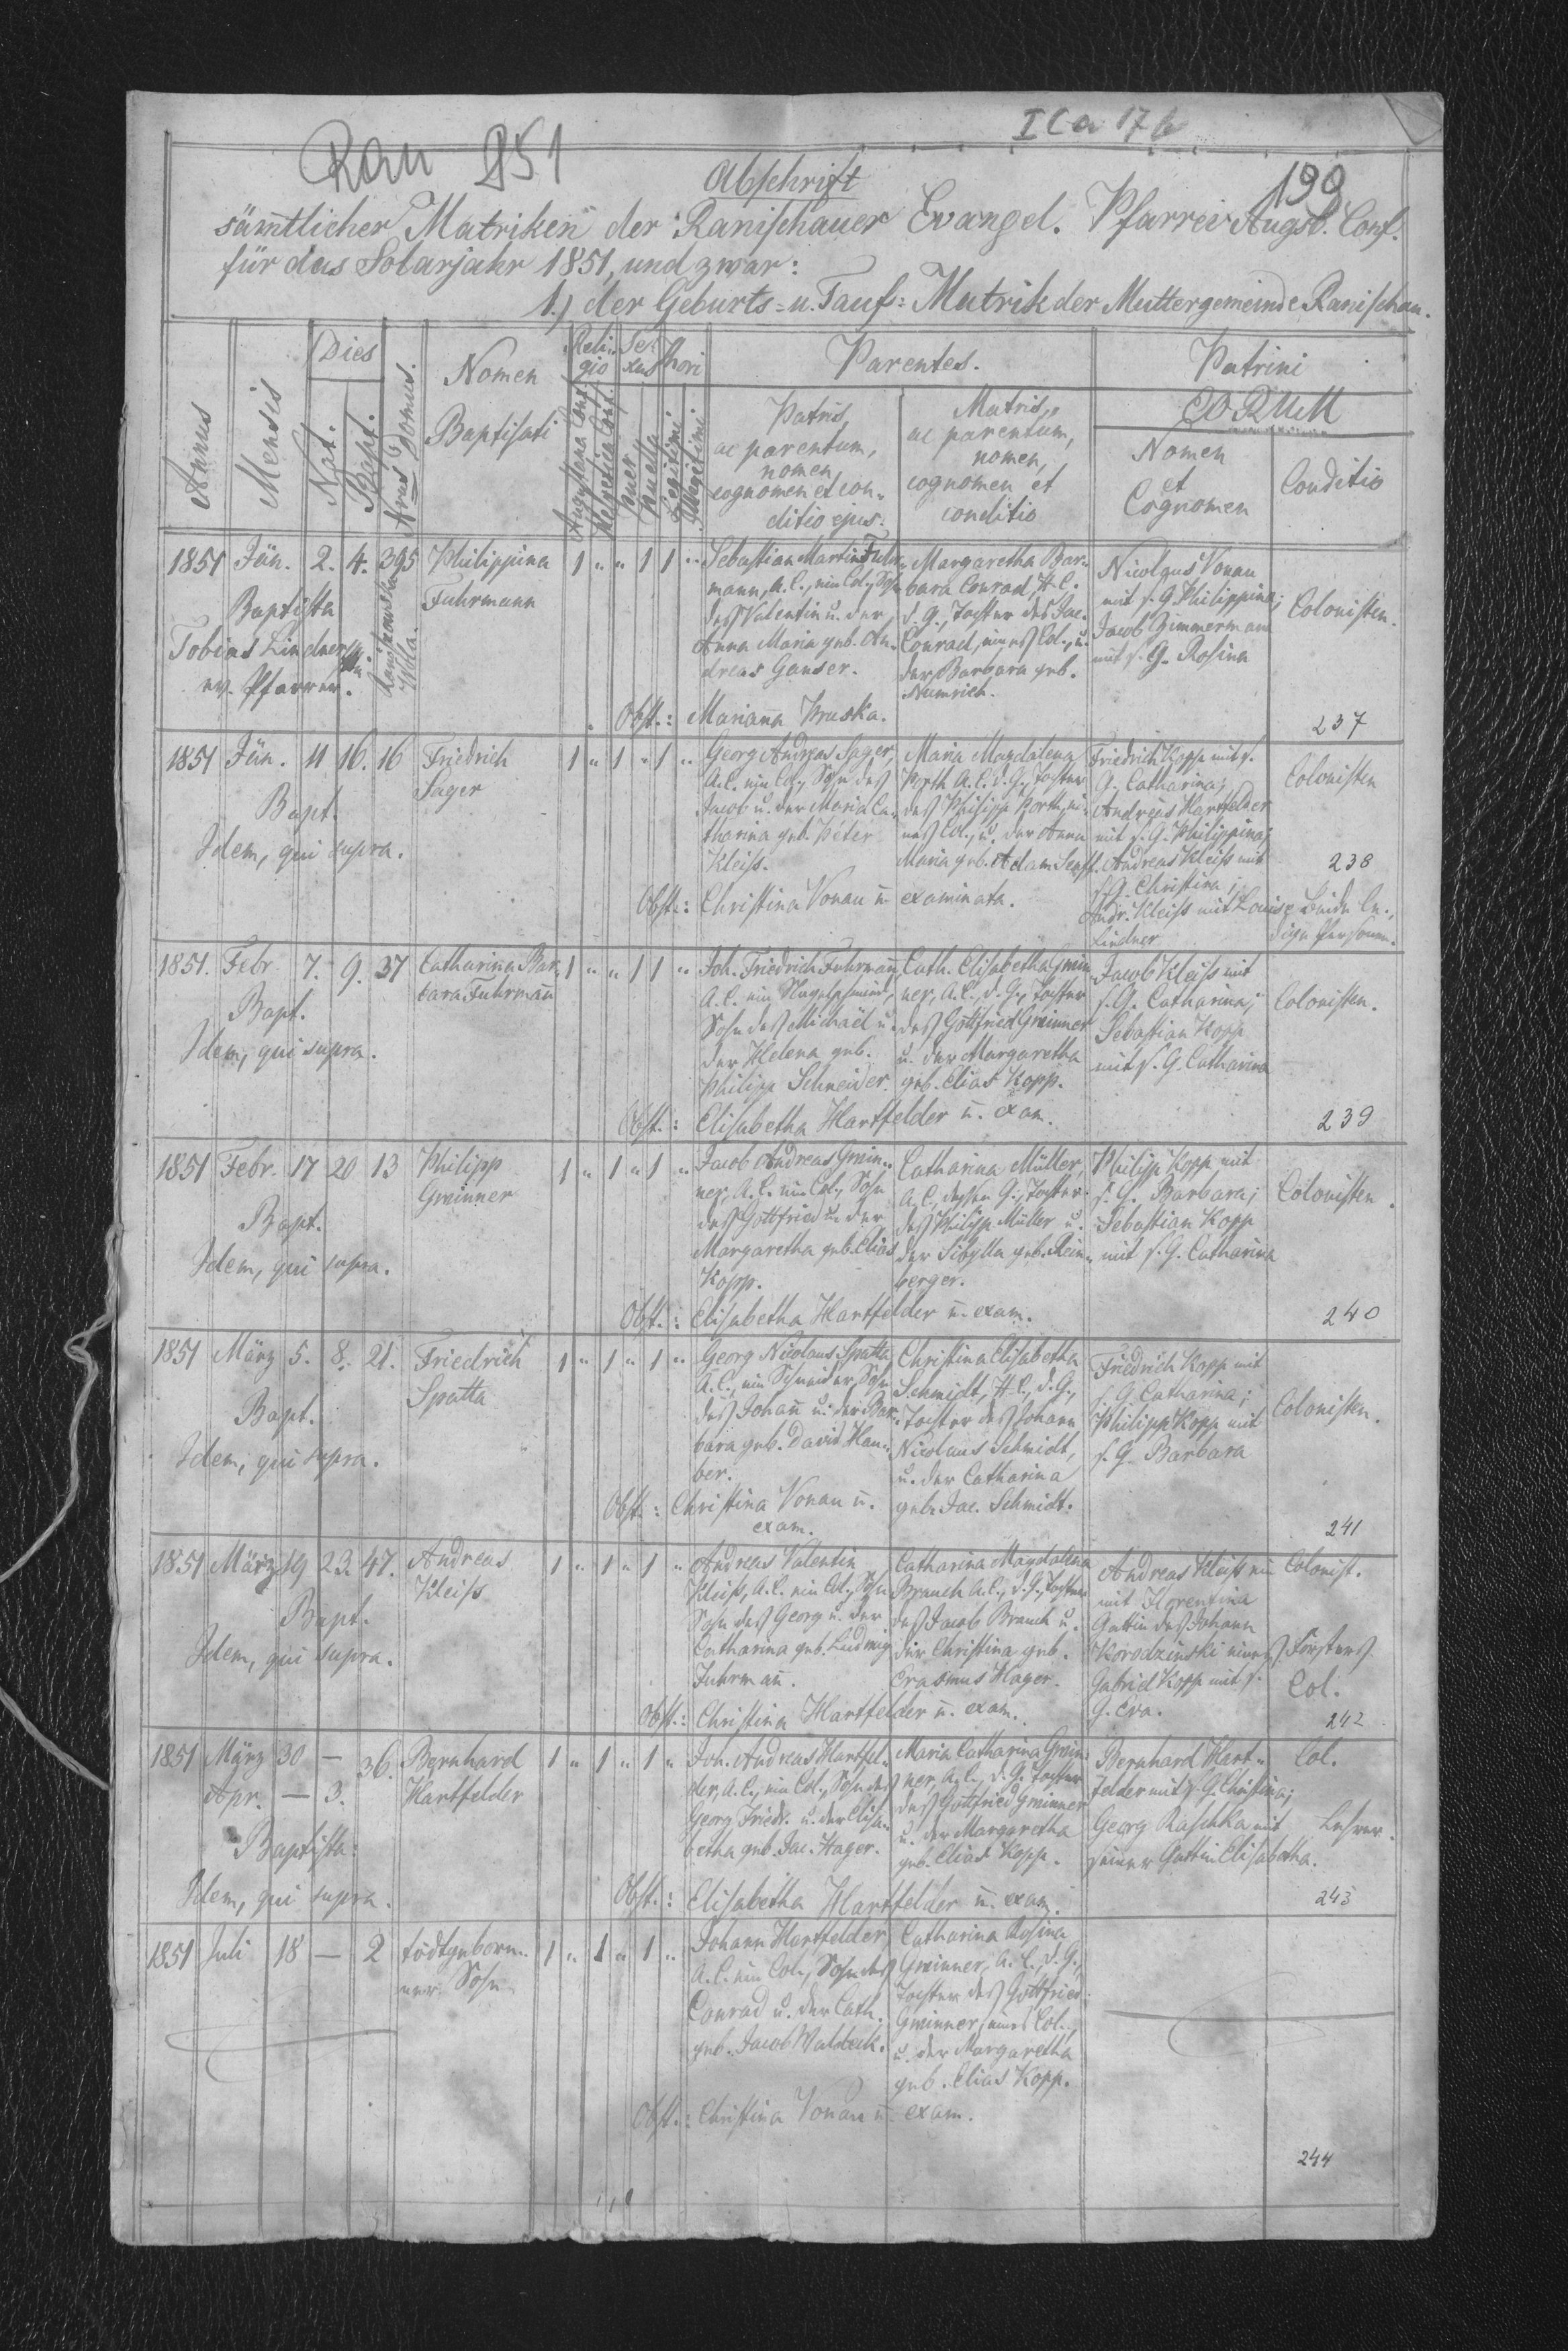 I C a 17 b
Ran 851
199
Abschrift
sämtlicher Matriken der Ranischauer Evangel. Pfarrei Augsb. Conf.
für das Solarjahr 1851, und zwar:
1.) der Geburts- u. Tauf-Matrik der Muttergemeinde Ranischau.
Annus
Mensis
Dies
Nat.
Bapt.
Nrus Domus.
Nomen
Baptisati
Reli-
gio
Augustana Conf.
Helvetica Conf.
Se-
xus
puer
puella
Thori
Legitimi
Illegitimi
Parentes.
Patris,
ac parentum,
nomen,
cognomen et con-
ditio ejus.
Matris,
ac parentum,
nomen,
cognomen et
conditio
Patrini
EORUM
Nomen
et
Cognomen
Conditio
1851 Jän. 2. 4. 395 Philippina
Fuhrmann
1 " " 1 1 "
Baptista
Tobias Lindner
ev. Pfarrer.
Wola.
Sebastian Martin Fuhr-
mann, A.C., ein Col., Sohn
des Valentin u. der
Anna Maria geb. An-
dreas Ganser.
Margaretha Bar-
bara Conrad, H.C.
d. G., Tochter des Jac.
Conrad, eines Col., u.
der Barbara geb.
Numrich.
Nicolaus Vonau
mit s. G. Philippina;
Jacob Zimmermann
mit s. G. Rosina
Colonisten.
Obst.: Marianna Pruska.
237
1851 Jän. 11 16. 16 Friedrich
Sager
1 " 1 " 1 "
Bapt.
Idem, qui supra.
Georg Andreas Sager,
A.C. ein Col., Sohn des
Jacob u. der Maria Ca-
tharina geb. Peter
Kleiss.
Maria Magdalena
Porth A.C. d. G., Tochter
des Philipp Porth, ei-
nes Col., u. der Anna
Maria geb. Adam Senft.
Friedrich Kopp mit s.
G. Catharina;
Andreas Hartfelder
mit s. G. Philippina;
Andreas Kleiss mit
s. G. Christina;
Andr. Kleiss mit Louise
Lindner
Colonisten
238
Beide le-
dige Personen.
Obst.: Christina Vonau u. examinata.
1851. Febr. 7. 9. 37 Catharina Bar-
bara Fuhrmann
1 " " 1 1 "
Bapt.
Idem, qui supra.
Joh. Friedrich Fuhrmann,
A.C. ein Nagelschmied,
Sohn des Michaël u.
der Helena geb.
Philipp Schneider.
Cath. Elisabetha Grein-
ner, A.C., d. G., Tochter
des Gottfried Greinner
u. der Margaretha
geb. Elias Kopp.
Jacob Kleiss mit
s. G. Catharina;
Sebastian Kopp
mit s. G. Catharina
Colonisten.
Obst.: Elisabetha Hartfelder u. exam.
239
1851 Febr. 17 20 13 Philipp
Greinner
1 " 1 " 1 "
Bapt.
Idem, qui supra.
Jacob Andreas Grein-
ner, A.C. ein Col., Sohn
des Gottfried u. der
Margaretha geb. Elias
Kopp.
Catharina Müller,
A.C., dessen G., Tochter
des Philipp Müller u.
der Sibylla geb. Rein-
berger.
Philipp Kopp mit
s. G. Barbara;
Sebastian Kopp
mit s. G. Catharina
Colonisten.
Obst.: Elisabetha Hartfelder u. exam.
240
1851 März 5. 8. 21. Friedrich
Spatta
1 " 1 " 1 "
Bapt.
Idem, qui supra.
Georg Nicolaus Spatta,
A.C., ein Schneider, Sohn
des Johann u. der Bar-
bara geb. David Hau-
ber.
Christina Elisabetha
Schmidt, H.C., d. G.,
Tochter des Johann
Nicolaus Schmidt,
u. der Catharina
geb. Jac. Schmidt.
Friedrich Kopp mit
s. G. Catharina;
Philipp Kopp mit
s. G. Barbara
Colonisten.
Obst.: Christina Vonau u.
exam.
241
1851 März 19 23. 47. Andreas
Kleiss
1 " 1 " 1 "
Bapt.
Idem, qui supra.
Andreas Valentin
Kleiss, A.C. ein Col., Sohn
Sohn des Georg u. der
Catharina geb. Ludwig
Fuhrmann.
Catharina Magdalena
Brauch A.C., d. G., Tochter
des Jacob Brauch u.
der Christina geb.
Erasmus Hager.
Andreas Kleiss ein
mit Florentina
Gattin des Johann
Korodzinski eines
Gabriel Kopp mit s.
G. Eva.
Colonist.
Försters
Col.
Obst.: Christina Hartfelder u. exam.
242
1851 März 30 — 36. Bernhard
Apr. — 3. Hartfelder
1 " 1 " 1 "
Baptista:
Idem, qui supra.
Joh. Andreas Hartfel-
der, A.C., ein Col., Sohn des
Georg Friedr. u. der Elisa-
betha geb. Jac. Hager.
Maria Catharina Grein-
ner, A.C., d. G. Tochter
des Gottfried Greinner
u. der Margaretha
geb. Elias Kopp.
Bernhard Hart-
felder mit s. G. Christina;
Georg Raschka mit
seiner Gattin Elisabetha.
Col.
Lehrer.
Obst.: Elisabetha Hartfelder u. exam.
243
1851 Juli 18 — 2 todtgebore-
ner Sohn
1 " 1 " 1 "
Johann Hartfelder,
A.C. ein Col., Sohn des
Conrad u. der Cath.
geb. Jacob Waldeck.
Catharina Rosina
Greinner, A.C., d. G.,
Tochter des Gottfried
Greinner, eines Col.,
u. der Margaretha
geb. Elias Kopp.
Obst.: Christina Vonau u. exam.
244